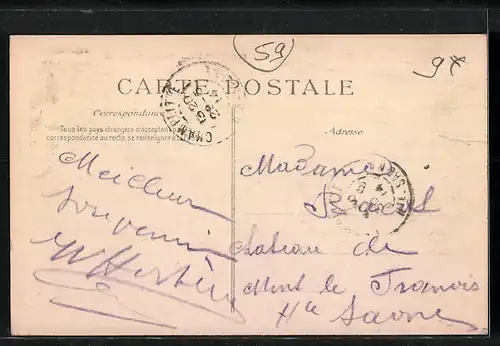 59
9x
CARTE POSTALE
Correspondance
Tous les pays étrangers n'acceptent pas la
correspondance au recto, se renseigner à la
Adresse
CHAMPLITTE
Meilleur
souvenir
Madame
Château de
Mont le Franois
Hte Saone